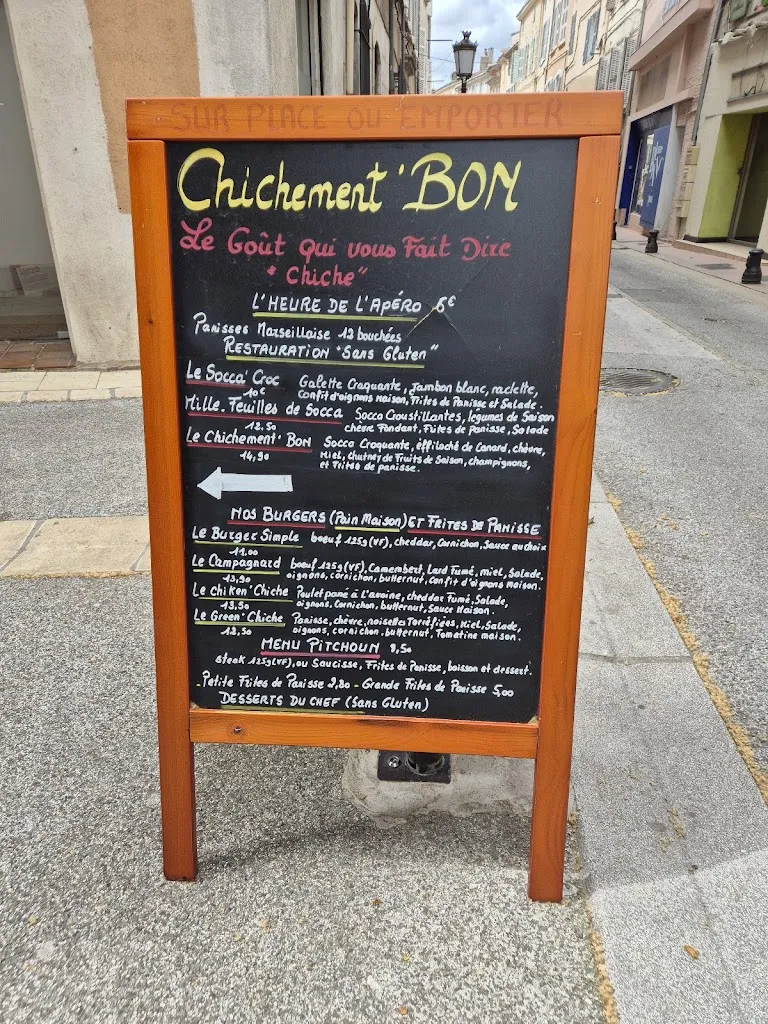 SUR PLACE OU EMPORTER
Chichement'BON
Le Goût qui vous Fait Dire
"Chiche"
L'HEURE DE L'APÉRO 6€
Panisses Marseillaise 12 bouchées
RESTAURATION "Sans Gluten"
Le Socca' Croc Galette Craquante, Jambon blanc, raclette,
10€ Confit d'oignons maison, Frites de Panisse et Salade.
Mille-Feuilles de Socca Socca Croustillantes, légumes de Saison
12.50 chèvre Fondant, Frites de panisse, Salade
Le Chichement'Bon Socca Croquante, éffiloché de Canard, chèvre,
14,90 Miel, chutney de Fruits de Saison, champignons,
et Frites de panisse.
NOS BURGERS (Pain Maison) ET FRITES DE PANISSE
Le Burger Simple boeuf 125g (VF), cheddar, Cornichon, Sauce au choix
11.00
Le Campagnard boeuf 125g (VF), Camembert, Lard Fumé, miel, Salade,
13,90 oignons, cornichon, butternut, Confit d'oignons maison.
Le chiken'Chiche Poulet pané à l'avoine, cheddar Fumé, Salade,
13.50 oignons, Cornichon, butternut, Sauce Maison.
Le Green'Chiche Panisse, chèvre, noisettes Torréfiées, Miel, Salade,
12,50 oignons, cornichon, butternut, Tomatine maison.
MENU PITCHOUN 9,50
Steak 125g (VF), ou Saucisse, Frites de Panisse, boisson et dessert.
-Petite Frites de Panisse 2,80 - Grande Frites de Panisse 5,00
DESSERTS DU CHEF (Sans Gluten)